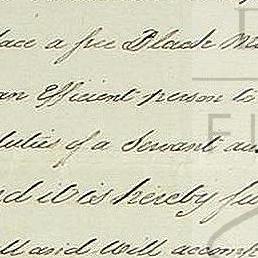 lace a free Black Ma
an Efficient person to
duties of a Servant au
nd it is hereby fu
ll and will accomp